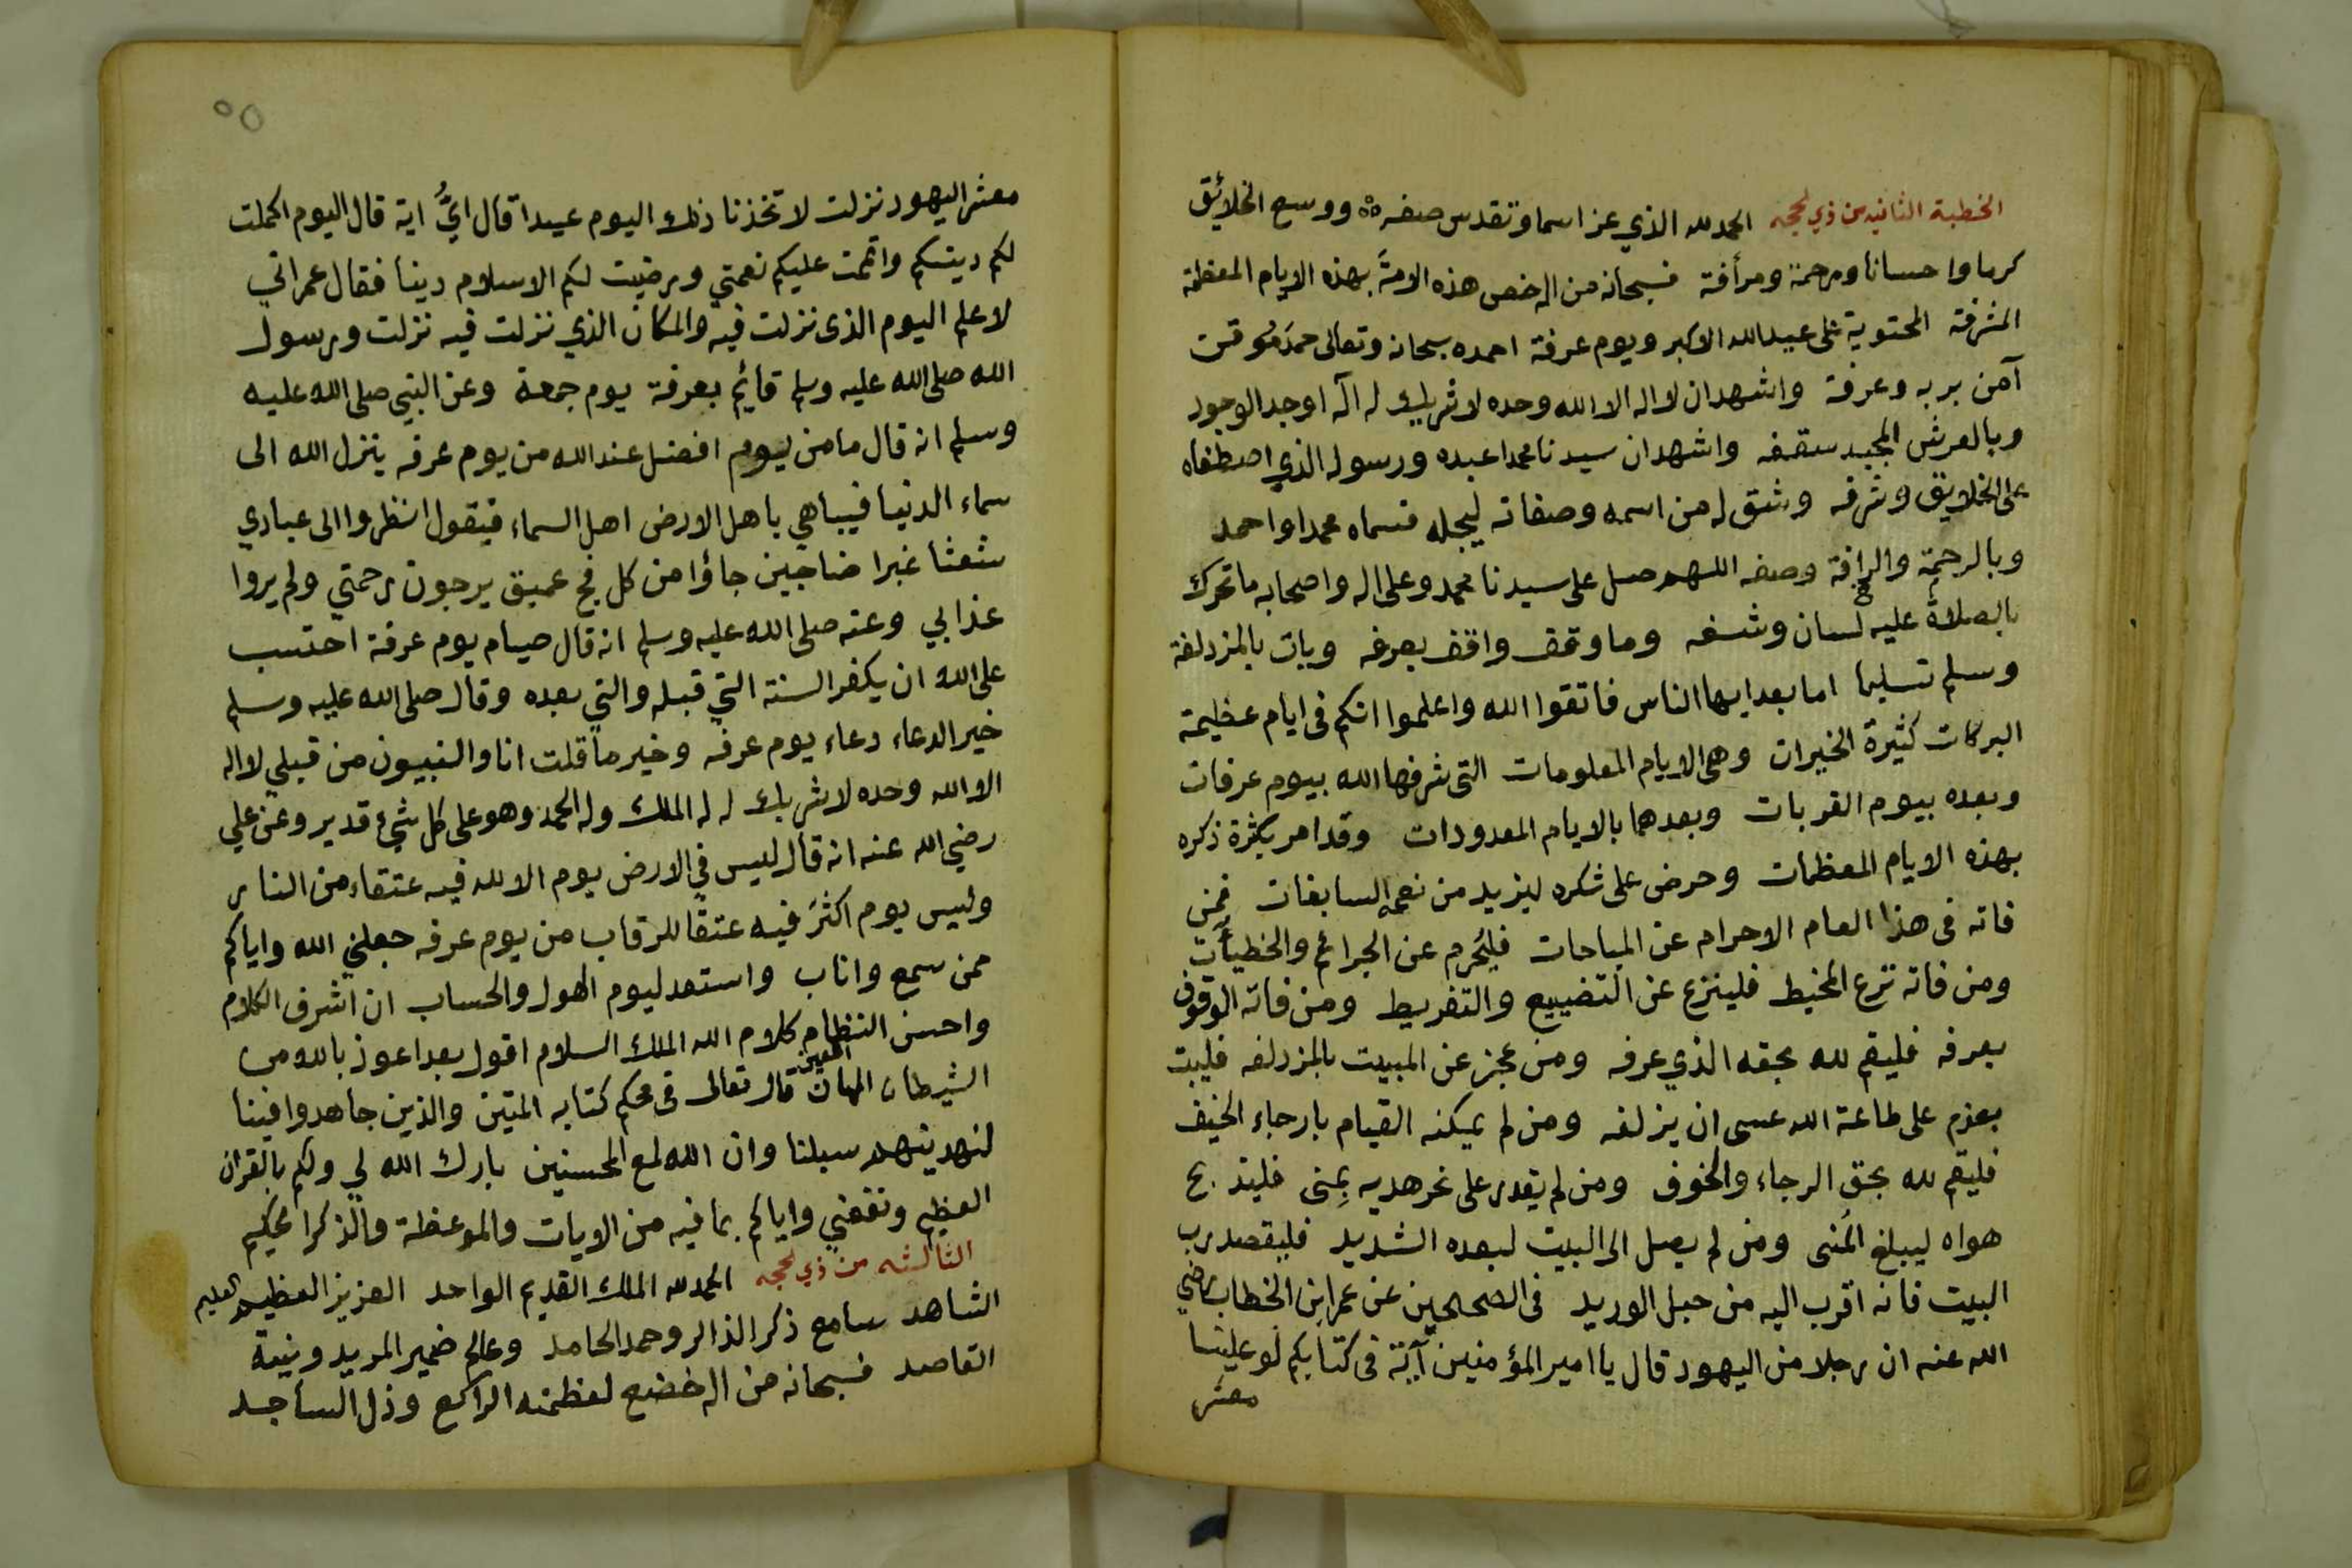 الخطبة الثانيه من ذي لحجه الحمد لله الذي عز اسما وتقدس صفه ووسع الخلائق
كرما واحسانا ورحمة ورأفة فسبحانه من اله خص هذه الامة بهذه الايام المعظمة
المشرفة المحتوية على عيد الله الاكبر ويوم عرفة احمده سبحانه وتعالى حمد موقن
آمن بربه وعرفة واشهد ان لا اله الا الله وحده لا شريك له آله اوجد الوجود
وبالعرش المجيد سقفه واشهد ان سيدنا محمدا عبده ورسوله الذي اصطفاه
على الخلايق وشرفه وشق له من اسمه وصفاته ليجله فسماه محمدا واحمد
وبالرحمة والرافة وصفه اللهم صل على سيدنا محمد وعلى اله واصحابه ما تحرك
بالصلاة عليه لسان وشفه وما وقف واقف بعرفه وبات بالمزدلفة
وسلم تسليما اما بعد ايها الناس فاتقوا الله واعلموا انكم في ايام عظيمة
البركات كثيرة الخيرات وهي الايام المعلومات التي شرفها الله بيوم عرفات
وبعده بيوم القربات وبعدهما بالايام المعدودات وقد امر بكثرة ذكره
بهذه الايام المعظمات وحرض على شكره ليزيد من نعمه السابغات فمن
فاته في هذا العام الاحرام عن المباحات فليحرم عن الجرائم والخطيآت
ومن فاته نزع المخيط فلينزع عن التضييع والتفريط ومن فاته الوقوف
بعرفه فليقم لله بحقه الذي عرفه ومن عجز عن المبيت بالمزدلفه فليبت
بعزم على طاعة الله عسى ان يزلفه ومن لم يمكنه القيام بارجاء الخيف
فليقم لله بحق الرجاء والخوف ومن لم يقدر على نحر هديه بمنى فليذبح
هواه ليبلغ المنى ومن لم يصل الى البيت لبعده الشديد فليقصد رب
البيت فانه اقرب اليه من حبل الوريد في الصحيحين عن عمر ابن الخطاب رضي
الله عنه ان رجلا من اليهود قال يا امير المؤمنين آية في كتابكم لو علينا
معشر
٥٥
معشر اليهود نزلت لاتخذنا ذلك اليوم عيدا قال ايُّ اية قال اليوم اكملت
لكم دينكم واتممت عليكم نعمتي ورضيت لكم الاسلام دينا فقال عمر اني
لاعلم اليوم الذى نزلت فيه والمكان الذي نزلت فيه نزلت ورسول
الله صلى الله عليه وسلم قائم بعرفة يوم جمعة وعن النبي صلى الله عليه
وسلم انه قال ما من يوم افضل عند الله من يوم عرفه ينزل الله الى
سماء الدنيا فيباهي باهل الارض اهل السماء فيقول انظروا الى عبادي
شعثا غبرا ضاجين جاؤا من كل فج عميق يرجون رحمتي ولم يروا
عذابي وعنه صلى الله عليه وسلم انه قال صيام يوم عرفة احتسب
على الله ان يكفر السنة التي قبله والتي بعده وقال صلى الله عليه وسلم
خير الدعاء دعاء يوم عرفه وخير ما قلت انا والنبيون من قبلي لا اله
الا الله وحده لا شريك له له الملك وله الحمد وهو على كل شيء قدير وعن علي
رضي الله عنه انه قال ليس في الارض يوم الا لله فيه عتقاء من النار
وليس يوم اكثر فيه عتقا للرقاب من يوم عرفه جعلني الله واياكم
ممن سمع واناب واستعد ليوم الهول والحساب ان اشرف الكلام
واحسن النظام كلام الله الملك السلام اقول بعد اعوذ بالله من
الشيطان المهان اللعين قال تعالى في محكم كتابه المتين والذين جاهدوا فينا
لنهدينهم سبلنا وان الله لمع المحسنين بارك الله لي ولكم بالقران
العظيم ونفعني واياكم بما فيه من الايات والموعظة والذكر الحكيم
الثالثه من ذي لحجه الحمد لله الملك القديم الواحد العزيز العظيم العليم
الشاهد سامع ذكر الذاكر وحمد الحامد وعالم ضمير المريد ونية
القاصد فسبحانه من اله خضع لعظمته الراكع وذل الساجد